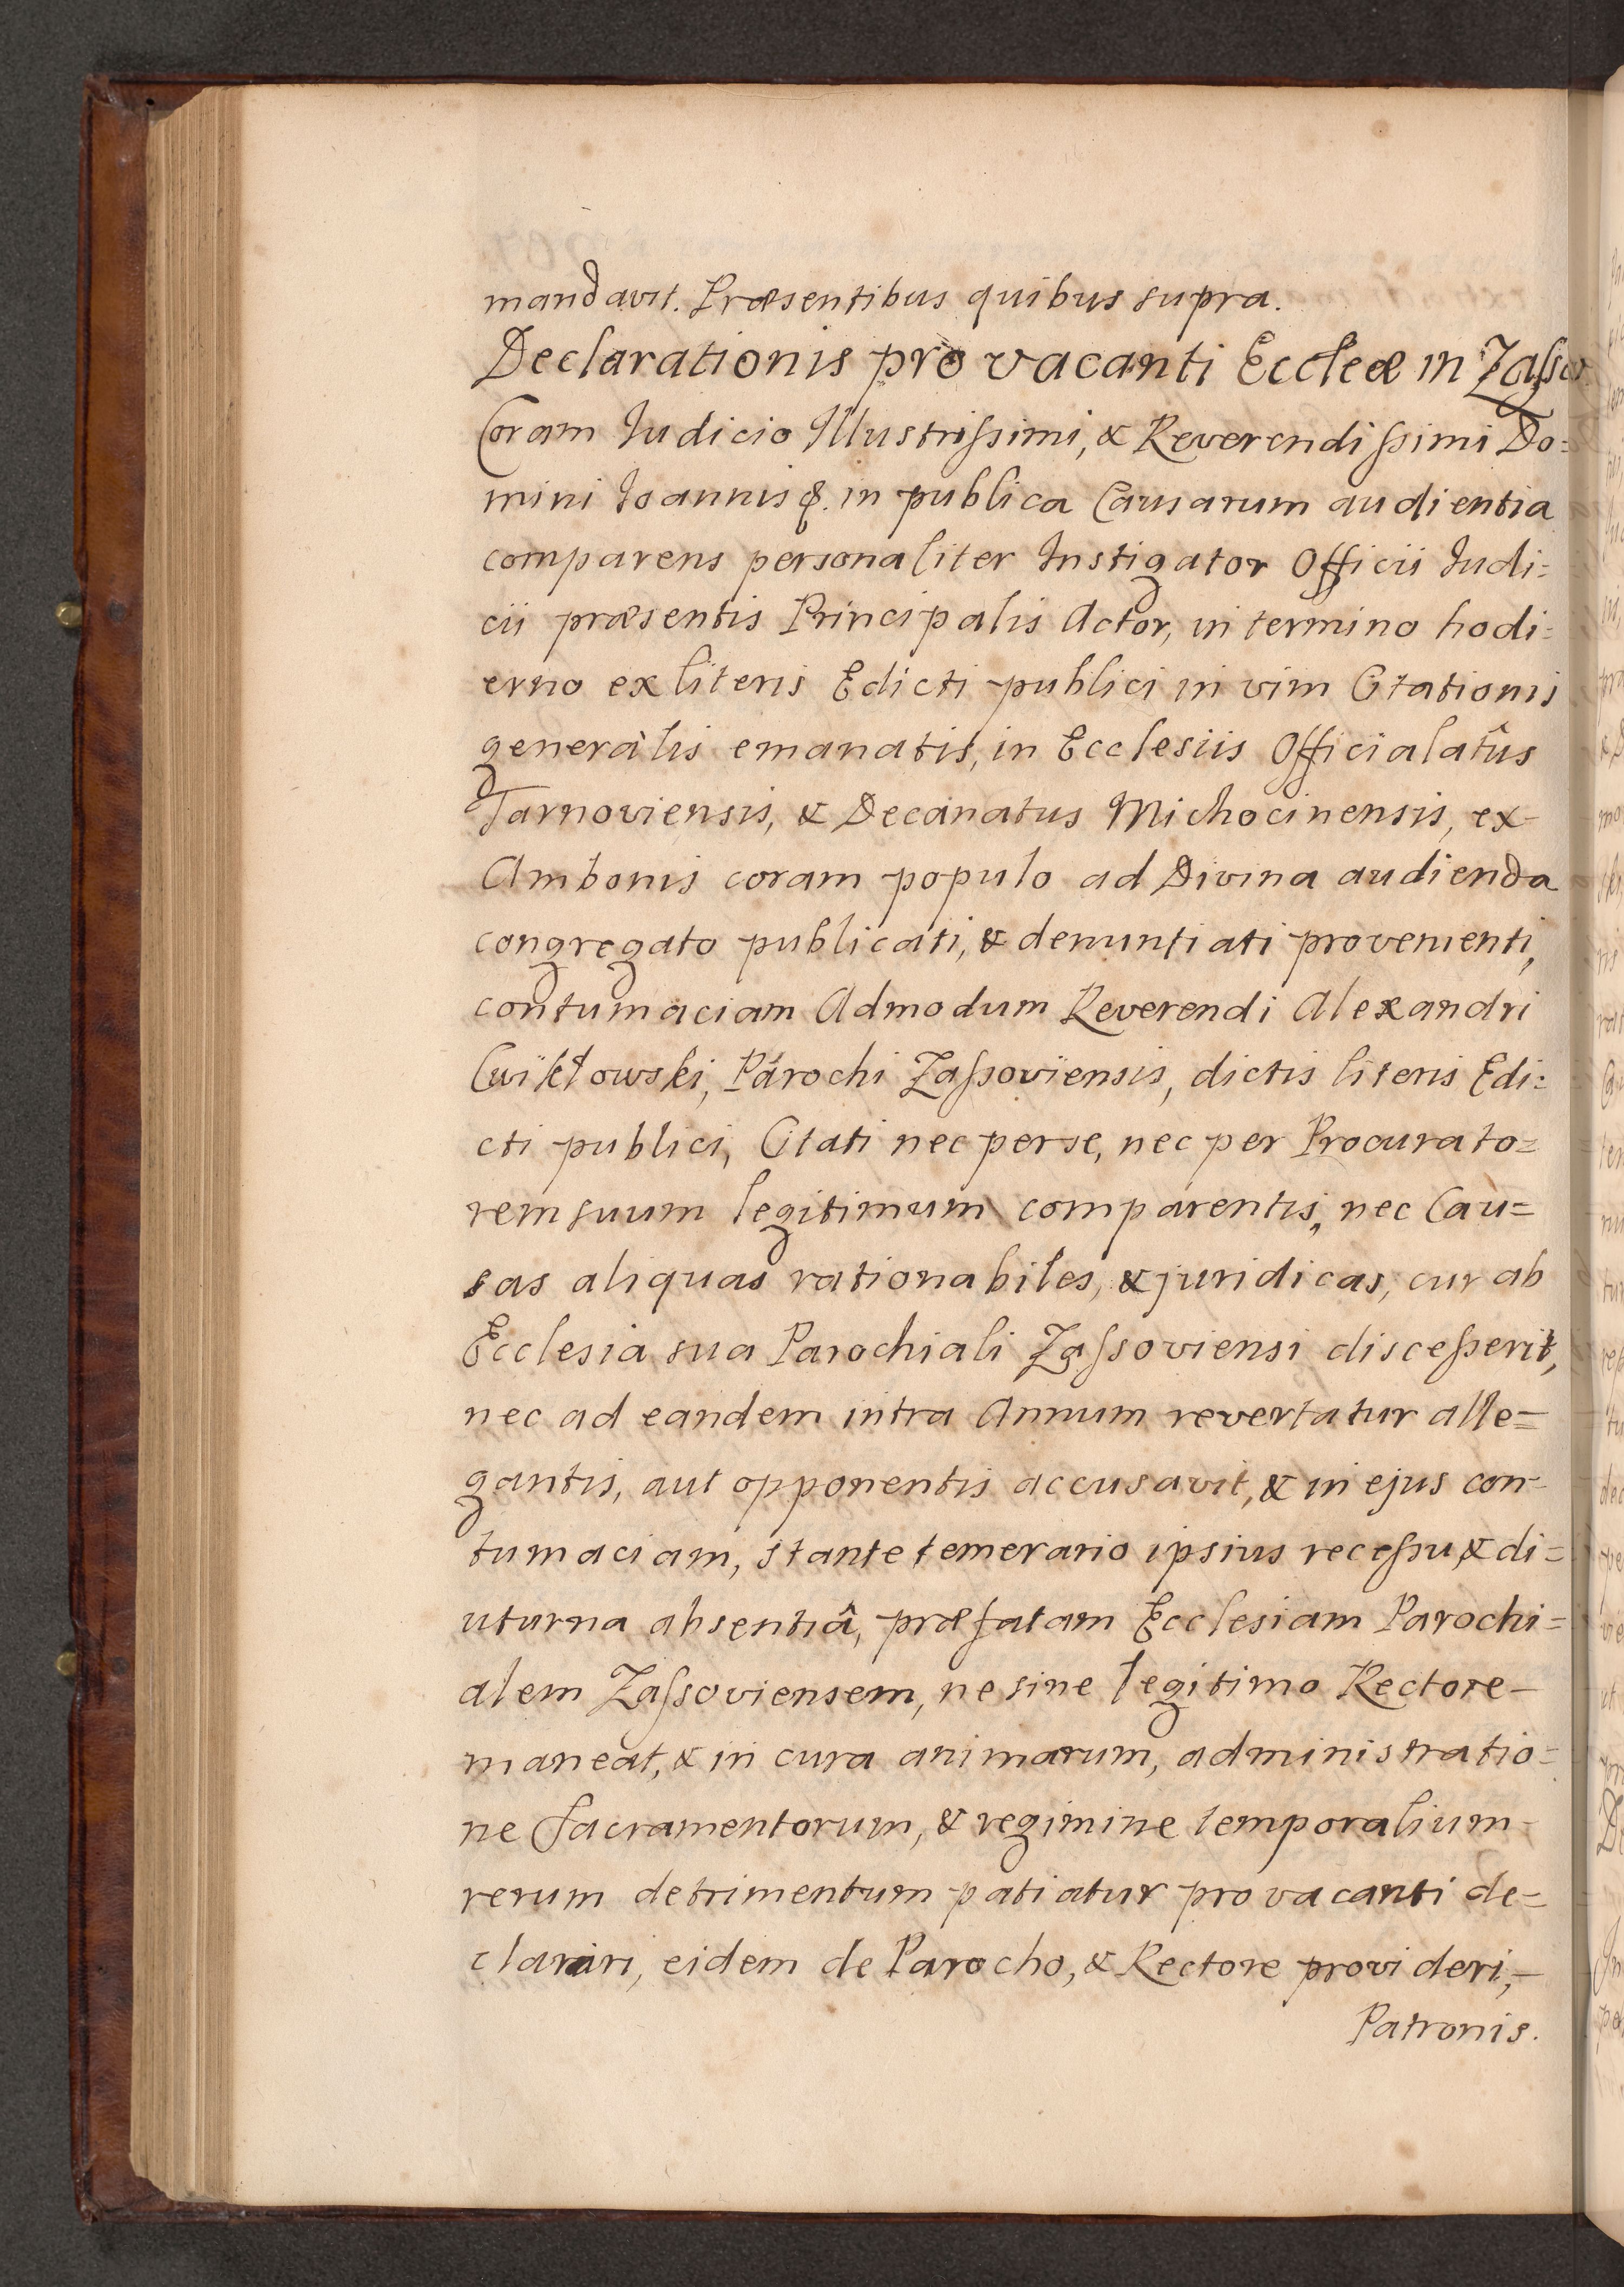 mandavit. Præsentibus quibus supra.
Declarationis pro vacanti Eccleæ in Zaſsow
Coram Iudicio Illustriſsimi, & Reverendiſsimi Do=
mini Ioannis &. in publica Causarum audientia
comparens personaliter Instigator Officii Iudi=
cii præsentis Principalis Actor, in termino hodi=
erno ex literis Edicti publici in vim Citationis
generalis emanatis, in Ecclesiis Officialatûs
Tarnoviensis, & Decanatus Michocinensis, ex
Ambonis coram populo ad Divina audienda
congregato publicati, & denuntiati provenienti,
contumaciam Admodum Reverendi Alexandri
Cwikłowski, Parochi Zaſsoviensis, dictis literis Edi=
cti publici, Citati nec per se, nec per Procurato=
rem suum legitimum comparentis, nec Cau=
sas aliquas rationabiles, & juridicas, cur ab
Ecclesia sua Parochiali Zaſsoviensi disceſserit,
nec ad eandem intra Annum revertatur alle=
gantis, aut opponentis accusavit, & in ejus con=
tumaciam, stante temerario ipsius receſsu, & di=
uturna absentiâ, præfatam Ecclesiam Parochi=
alem Zaſsoviensem, ne sine legitimo Rectore
maneat, & in cura animarum, administratio=
ne Sacramentorum, & regimine temporalium
rerum detrimentum patiatur pro vacanti de=
clarari, eidem de Parocho, & Rectore provideri,
Patronis.